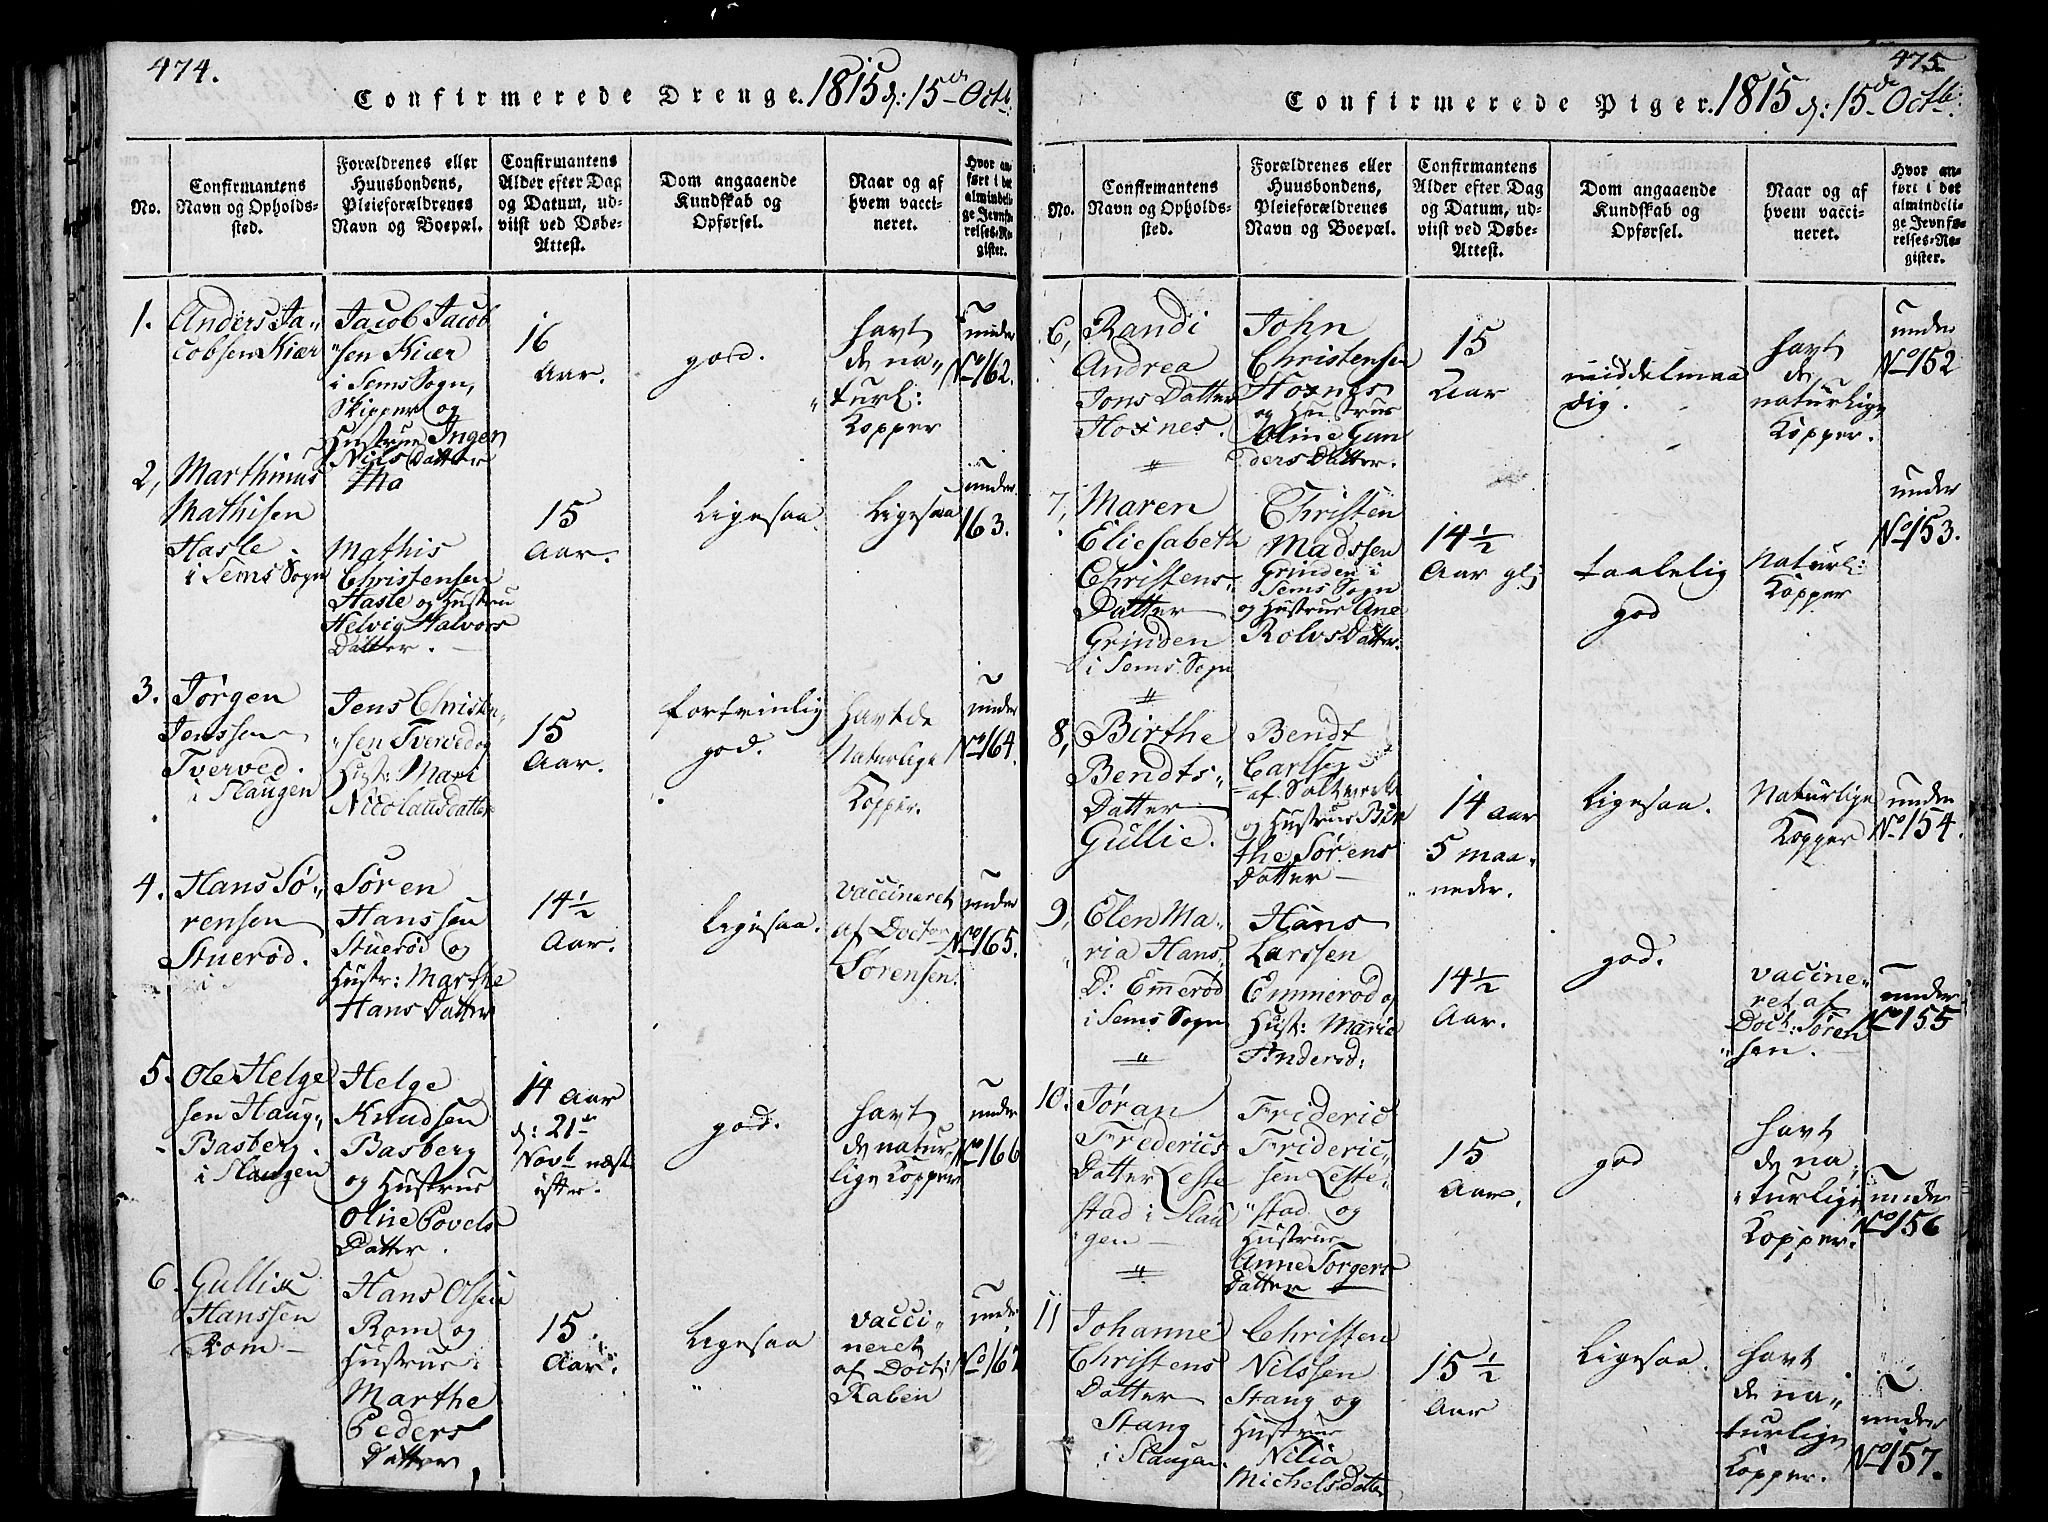 474.
Confirmerede Drenge. 1815 d: 15de Octb:
No.
Confirmantens
Navn og Opholds-
sted.
Forældrenes eller
Huusbondens,
Pleieforældrenes
Navn og Boepæl.
Confirmantens
Alder efter Dag
og Datum, ud-
viist ved Døbe-
Attest.
Dom angaaende
Kundskab og
Opførsel.
Naar og af
hvem vacci-
neret.
Hvor an-
ført i det
almindeli-
ge Jevnfø-
relses-Re-
gister.
1.
Anders Ja-
cobsen Kiær
Jacob Jacob
sen Kiær
i Sems Sogn,
Skipper og
Hustrue Ingen
Nils Datter
16
Aar.
god.
havt
de na-
turl:
Kopper
under
No 162.
2,
Marthinus
Mathisen
Hasle
i Sems Sogn
Mathis
Christensen
Hasle og Hustru
Helvig Halvors
Datter.
15
Aar.
Ligesaa.
Ligesaa
under
163.
3.
Jørgen
Jenssen
Tverved.
i Slaugen
Jens Christen
sen Tverved og
Hust: Mari
Nicolausdatter
15
Aar.
fortrinlig
god.
havt de
Naturlige
Kopper.
under
No 164.
4.
Hans Sø-
rensen
Stuerød.
Søren
Hanssen
Stuerød og
Hustr: Marthe
Hans Datter
14 1/2
Aar.
Ligesaa.
vaccineret
af Doctor
Sørensen.
under
No 165.
5.
Ole Helge
sen Haug
Basberg.
i Slaugen
Helge
Knudsen
Basberg
og Hustrue
Oline Povels
Datter.
14 Aar
d: 21de
Novb næst
efter.
god.
havt
de natur
lige Kopper
under
No 166
6.
Gullik
Hanssen
Rom
Hans Olsen
Rom og
Hustrue
Marthe
Peders
Datter
15.
Aar.
Ligesaa
vacci-
neret
af Doct:
Raben
under
No 167
475
Confirmerede Piger. 1815 d: 15de Octb:
No.
Confirmantens
Navn og Opholds-
sted.
Forældrenes eller
Huusbondens,
Pleieforældrenes
Navn og Boepæl.
Confirmantens
Alder efter Dag
og Datum, ud-
viist ved Døbe-
Attest.
Dom angaaende
Kundskab og
Opførsel.
Naar og af
hvem vacci-
neret.
Hvor an-
ført i det
almindeli-
ge Jevnfø-
relses-Re-
gister.
6,
Randi
Andrea
Jons Datter
Hoxnes.
John
Christensen
Hoxnes
og Hustrue
Oline Gun
ders Datter.
15
Aar
middelmaa
dig.
havt
de
naturlige
Kopper.
under
No 152
7,
Maren
Eliesabeth
Christens
Datter
Grinden
i Sems Sogn
Christen
Madssen
Grinden i
Sems Sogn
og Hustrue Ane
Rolvs Datter.
14 1/2
Aar gl:
taalelig
god
Naturl:
Kopper
under
No 153.
8,
Birthe
Bendts
Datter
Gullie.
Bendt
Carlsen
af Saltværk
og Hustrue Bir
the Sørens
Datter
14 Aar
5 maa-
neder.
Ligesaa.
Naturlige
Kopper
under
No 154.
9,
Elen Ma-
ria Hans
D: Emmerød
i Sems Sogn
Hans
Larssen
Emmerød og
Hust: Marie
14 1/2
Aar.
god.
vaccine-
ret af
Doct: Søren
sen.
under
No 155
10.
Jøran
Frederics
Datter Leste
stad i Slau
gen
Frideric
Frideric-
sen Leste-
stad og
Hustrue
Anne Torgers
Datter
15
Aar.
god
havt
de na-
turlige
Kopper.
under
No 156
11
Johanne
Christens
Datter
Stang
i Slaugen.
Christen
Nilssen
Stang og
Hustrue
Nilia
Michels Datter
15 1/2
Aar
Ligesaa.
havt
de na-
turlige
Kopper.
under
No 157.